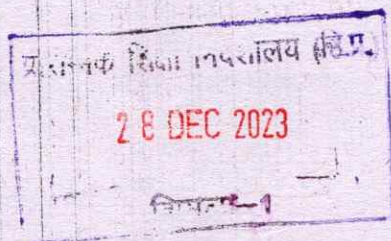 प्रारम्भिक शिक्षा निदेशालय हि.प्र.
28 DEC 2023
शिमला-1